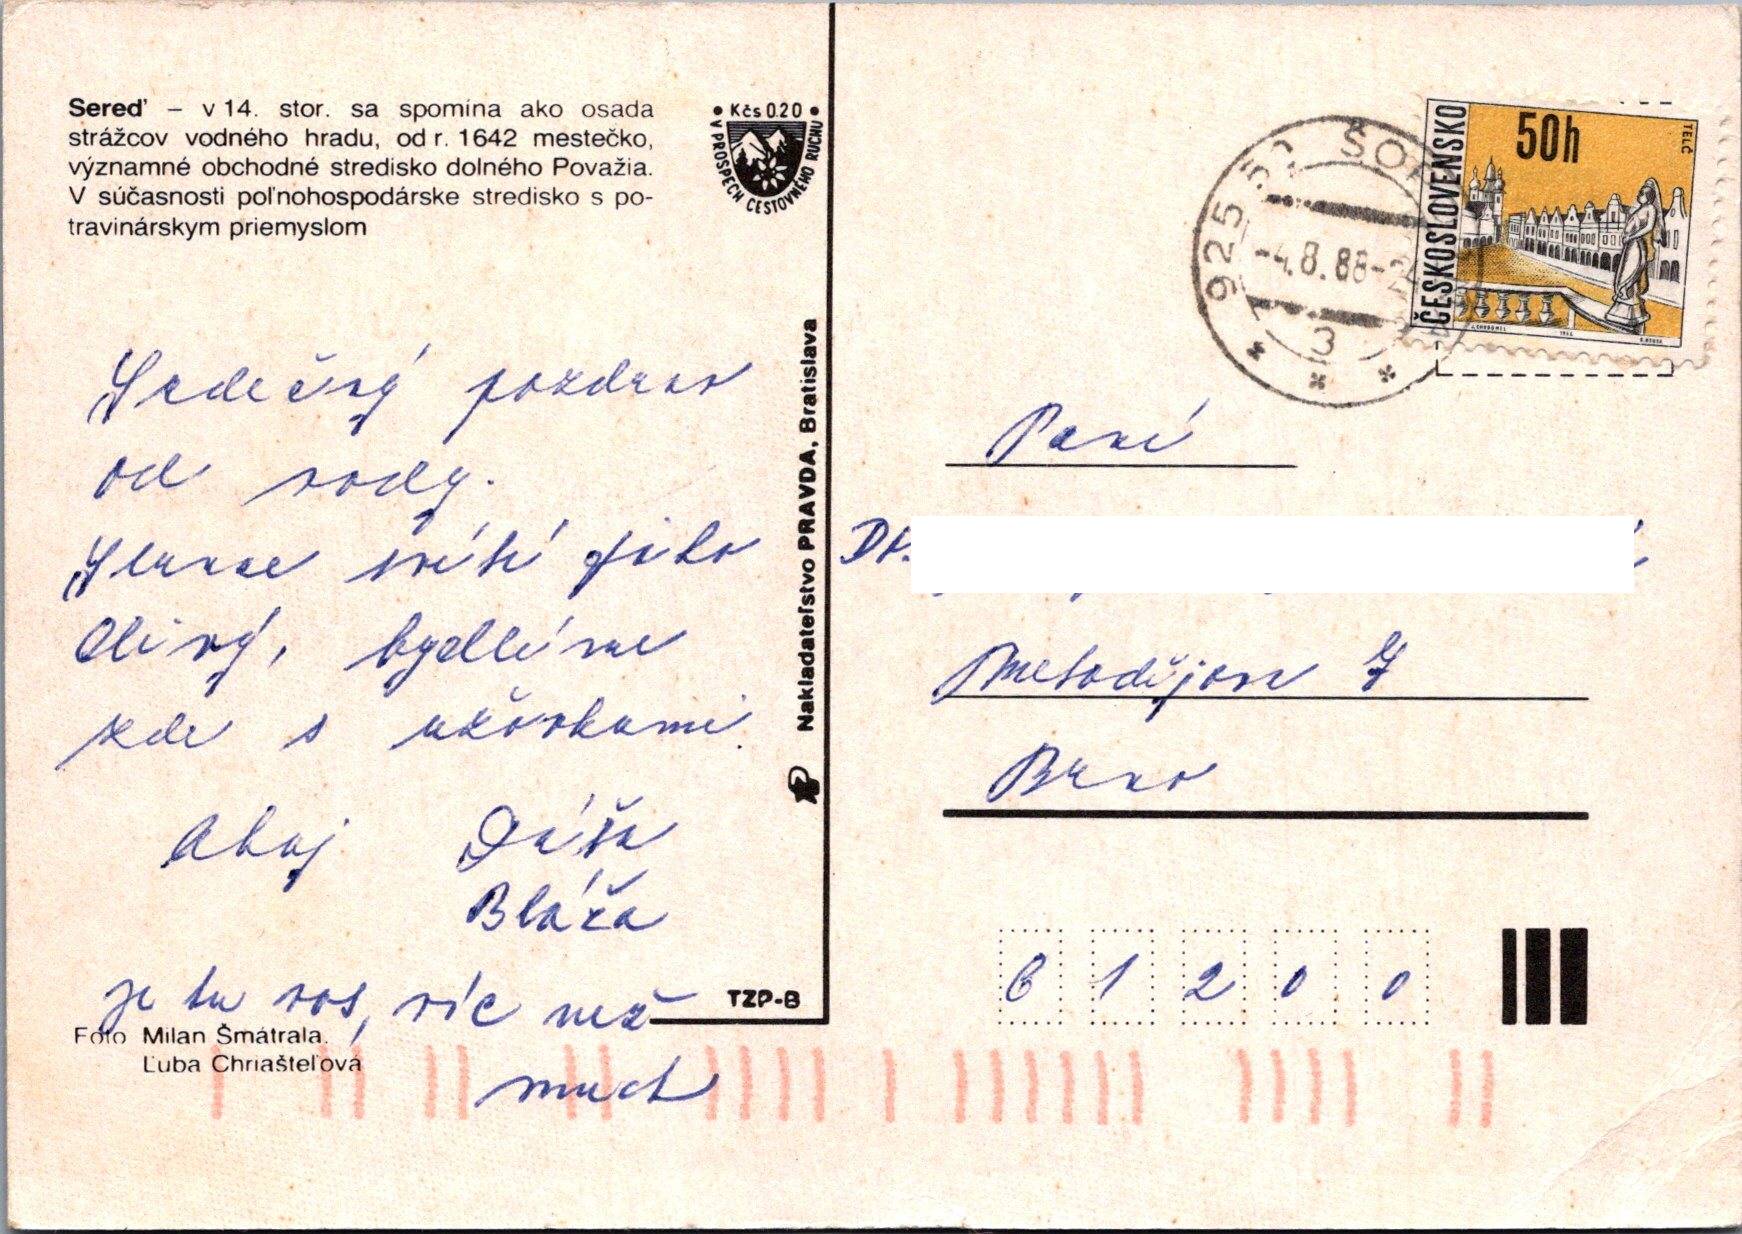 Sereď – v 14. stor. sa spomína ako osada
strážcov vodného hradu, od r. 1642 mestečko,
významné obchodné stredisko dolného Považia.
V súčasnosti poľnohospodárske stredisko s po-
travinárskym priemyslom
• Kčs 0.20 •
V PROSPECH CESTOVNÉHO RUCHU
Srdečný pozdrav
od vody.
Slunce svítí jako
divý, bydlíme
zde s užovkami.
Ahoj Dáša
Bláža
je tu vos, víc než
much
Foto Milan Šmátrala.
Ľuba Chriašteľová
TZP-B
Nakladateľstvo PRAVDA, Bratislava
925 52
-4.8.88-
3
ČESKOSLOVENSKO
50h
TELČ
Paní
Dr.
Metodějova 7
Brno
61200